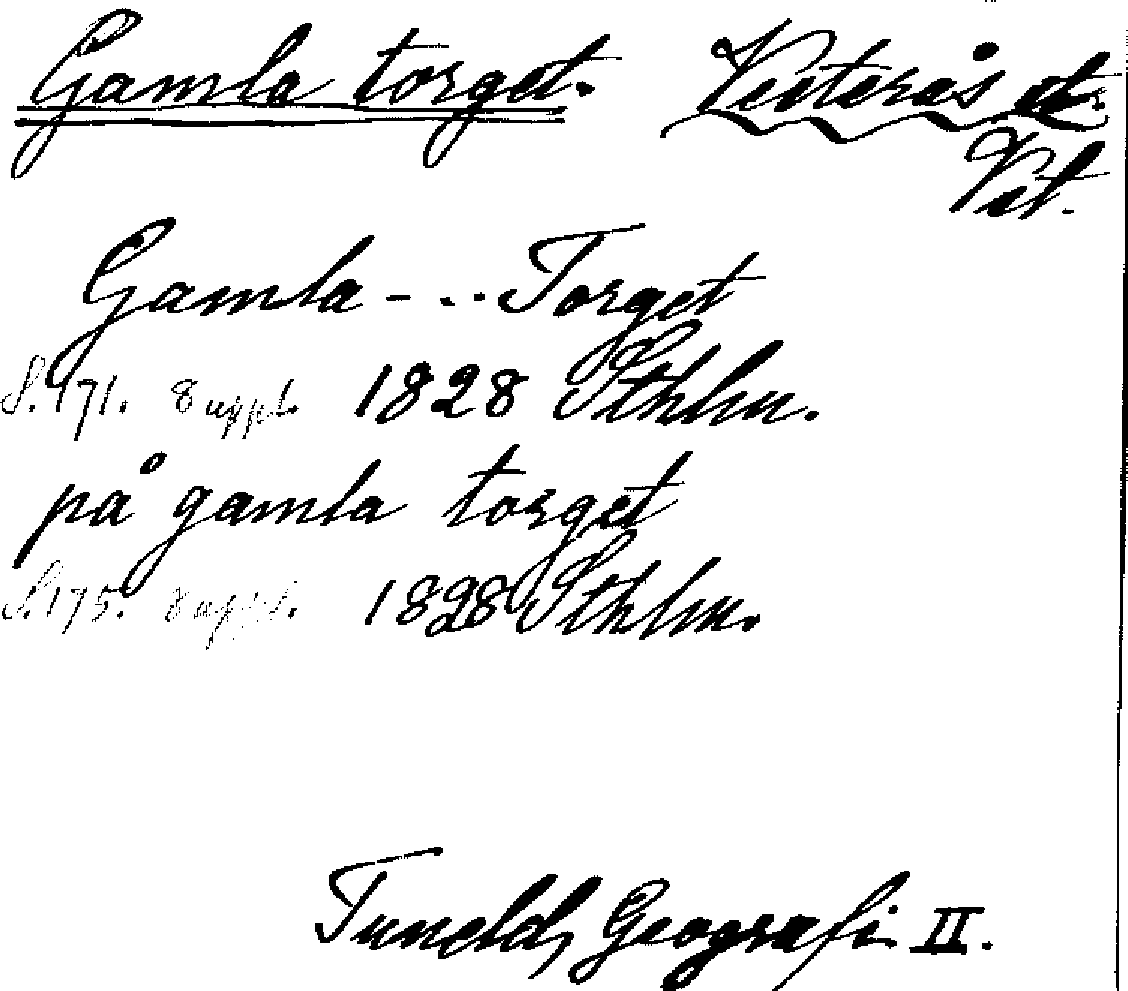 Gamla torget. Vesterås st.
Vst.
Gamla - - . . Torget
S. 171. 8 uppl. 1828 Sthlm.
på gamla torget
S. 175. 8 uppl. 1828 Sthlm.
Tunelds Geografi II.